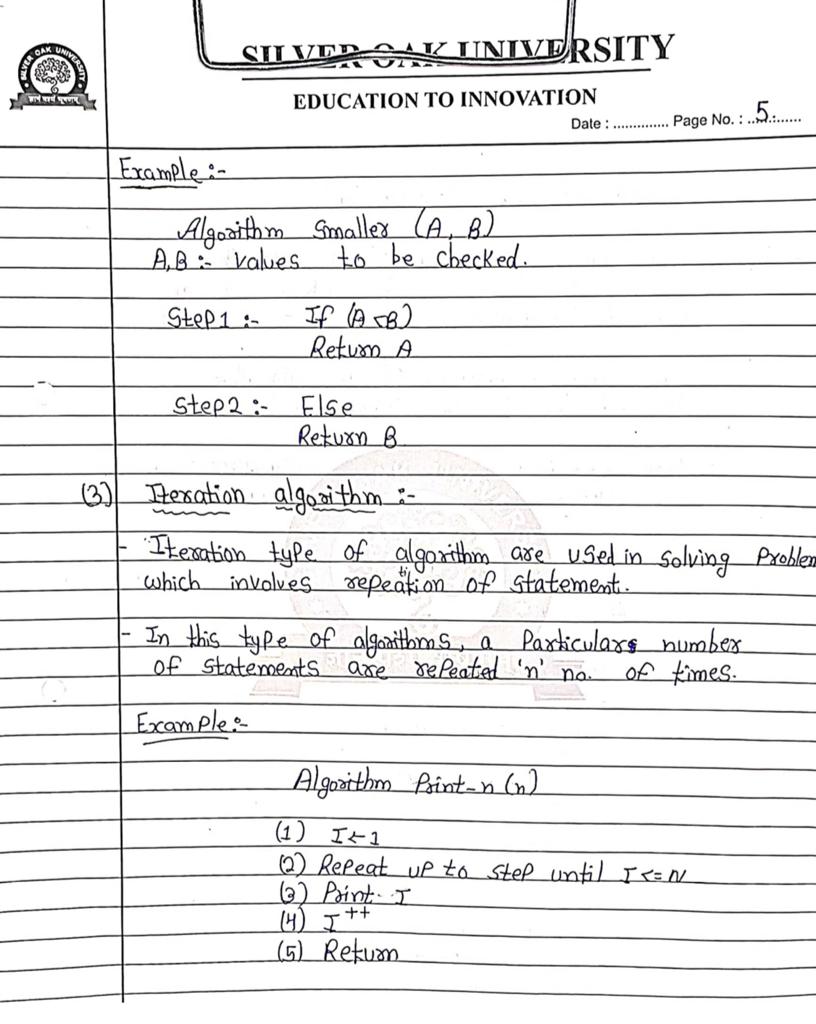 SILVER OAK UNIVERSITY
EDUCATION TO INNOVATION
Date : .............. Page No. : ..5.:......
SILVER OAK UNIVERSITY
Example :-
Algorithm Smaller (A, B)
A,B :- Values to be checked.
Step1 :- If (A <B)
Return A
Step2 :- Else
Return B
(3) Iteration algorithm :-
- Iteration type of algorithm are used in solving Problem
which involves repeation of statement.
ti
- In this type of algorithms, a Particulars number
of statements are repeated 'n' no. of times.
Example :-
Algorithm Print-n (n)
(1) I ← 1
(2) Repeat up to step until I <= N
(3) Print I
(4) I ++
(5) Return